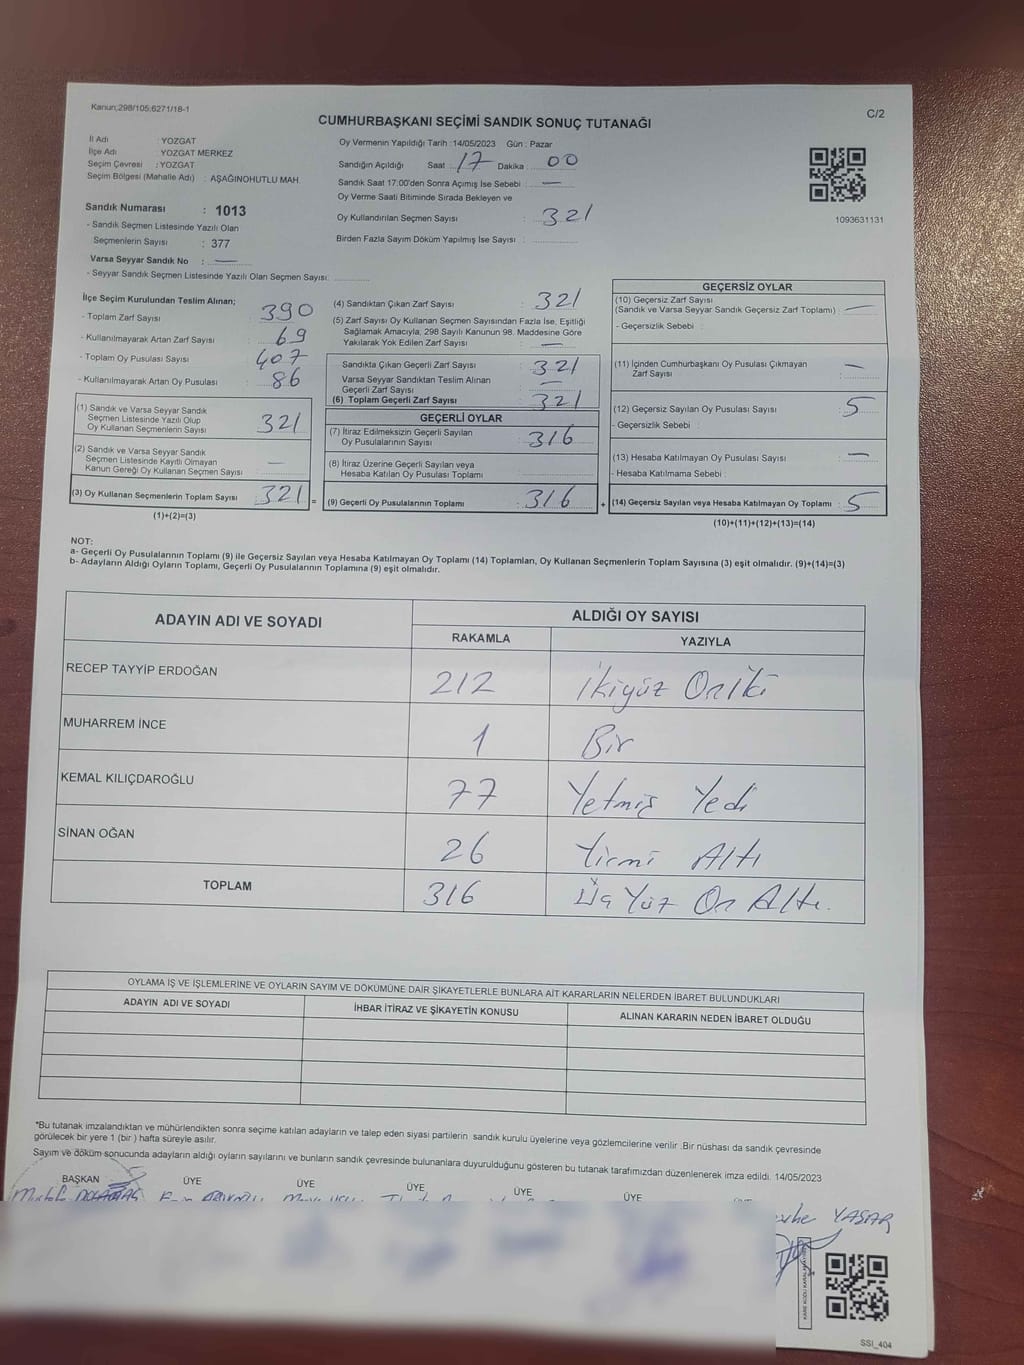 Kanun;298/105;6271/18-1
C/2
CUMHURBAŞKANI SEÇİMİ SANDIK SONUÇ TUTANAĞI
İl Adı : YOZGAT
İlçe Adı : YOZGAT MERKEZ
Seçim Çevresi : YOZGAT
Seçim Bölgesi (Mahalle Adı) : AŞAĞINOHUTLU MAH.
Sandık Numarası : 1013
- Sandık Seçmen Listesinde Yazılı Olan
Seçmenlerin Sayısı : 377
Varsa Seyyar Sandık No : —
- Seyyar Sandık Seçmen Listesinde Yazılı Olan Seçmen Sayısı:
Oy Vermenin Yapıldığı Tarih :14/05/2023 Gün : Pazar
Sandığın Açıldığı Saat : 17 Dakika : 00
Sandık Saat 17:00'den Sonra Açımış İse Sebebi : —
Oy Verme Saati Bitiminde Sırada Bekleyen ve
Oy Kullandırılan Seçmen Sayısı : 321
Birden Fazla Sayım Döküm Yapılmış İse Sayısı :
1093631131
İlçe Seçim Kurulundan Teslim Alınan;
- Toplam Zarf Sayısı : 390
- Kullanılmayarak Artan Zarf Sayısı : 69
- Toplam Oy Pusulası Sayısı : 407
- Kullanılmayarak Artan Oy Pusulası : 86
(1) Sandık ve Varsa Seyyar Sandık
Seçmen Listesinde Yazılı Olup
Oy Kullanan Seçmenlerin Sayısı : 321
(2) Sandık ve Varsa Seyyar Sandık
Seçmen Listesinde Kayıtlı Olmayan
Kanun Gereği Oy Kullanan Seçmen Sayısı : —
(3) Oy Kullanan Seçmenlerin Toplam Sayısı : 321 =
(1)+(2)=(3)
(4) Sandıktan Çıkan Zarf Sayısı : 321
(5) Zarf Sayısı Oy Kullanan Seçmen Sayısından Fazla İse, Eşitliği
Sağlamak Amacıyla, 298 Sayılı Kanunun 98. Maddesine Göre
Yakılarak Yok Edilen Zarf Sayısı : —
Sandıkta Çıkan Geçerli Zarf Sayısı : 321
Varsa Seyyar Sandıktan Teslim Alınan
Geçerli Zarf Sayısı : —
(6) Toplam Geçerli Zarf Sayısı : 321
GEÇERLİ OYLAR
(7) İtiraz Edilmeksizin Geçerli Sayılan
Oy Pusulalarının Sayısı : 316
(8) İtiraz Üzerine Geçerli Sayılan veya
Hesaba Katılan Oy Pusulası Toplamı :
(9) Geçerli Oy Pusulalarının Toplamı : 316 +
GEÇERSİZ OYLAR
(10) Geçersiz Zarf Sayısı
(Sandık ve Varsa Seyyar Sandık Geçersiz Zarf Toplamı) : —
- Geçersizlik Sebebi :
(11) İçinden Cumhurbaşkanı Oy Pusulası Çıkmayan
Zarf Sayısı : —
(12) Geçersiz Sayılan Oy Pusulası Sayısı : 5
- Geçersizlik Sebebi :
(13) Hesaba Katılmayan Oy Pusulası Sayısı : —
- Hesaba Katılmama Sebebi :
(14) Geçersiz Sayılan veya Hesaba Katılmayan Oy Toplamı : 5
(10)+(11)+(12)+(13)=(14)
NOT:
a- Geçerli Oy Pusulalarının Toplamı (9) ile Geçersiz Sayılan veya Hesaba Katılmayan Oy Toplamı (14) Toplamları, Oy Kullanan Seçmenlerin Toplam Sayısına (3) eşit olmalıdır. (9)+(14)=(3)
b- Adayların Aldığı Oyların Toplamı, Geçerli Oy Pusulalarının Toplamına (9) eşit olmalıdır.
ADAYIN ADI VE SOYADI
ALDIĞI OY SAYISI
RAKAMLA YAZIYLA
RECEP TAYYİP ERDOĞAN 212 İkiyüz Oniki
MUHARREM İNCE 1 Bir
KEMAL KILIÇDAROĞLU 77 Yetmiş Yedi
SİNAN OĞAN 26 Yirmi Altı
TOPLAM 316 Üç Yüz On Altı.
OYLAMA İŞ VE İŞLEMLERİNE VE OYLARIN SAYIM VE DÖKÜMÜNE DAİR ŞİKAYETLERLE BUNLARA AİT KARARLARIN NELERDEN İBARET BULUNDUKLARI
ADAYIN ADI VE SOYADI İHBAR İTİRAZ VE ŞİKAYETİN KONUSU ALINAN KARARIN NEDEN İBARET OLDUĞU
*Bu tutanak imzalandıktan ve mühürlendikten sonra seçime katılan adayların ve talep eden siyasi partilerin sandık kurulu üyelerine veya gözlemcilerine verilir .Bir nüshası da sandık çevresinde
görülecek bir yere 1 (bir ) hafta süreyle asılır.
Sayım ve döküm sonucunda adayların aldığı oyların sayılarını ve bunların sandık çevresinde bulunanlara duyurulduğunu gösteren bu tutanak tarafımızdan düzenlenerek imza edildi. 14/05/2023
BAŞKAN ÜYE ÜYE ÜYE ÜYE ÜYE
YAŞAR
SSI_404